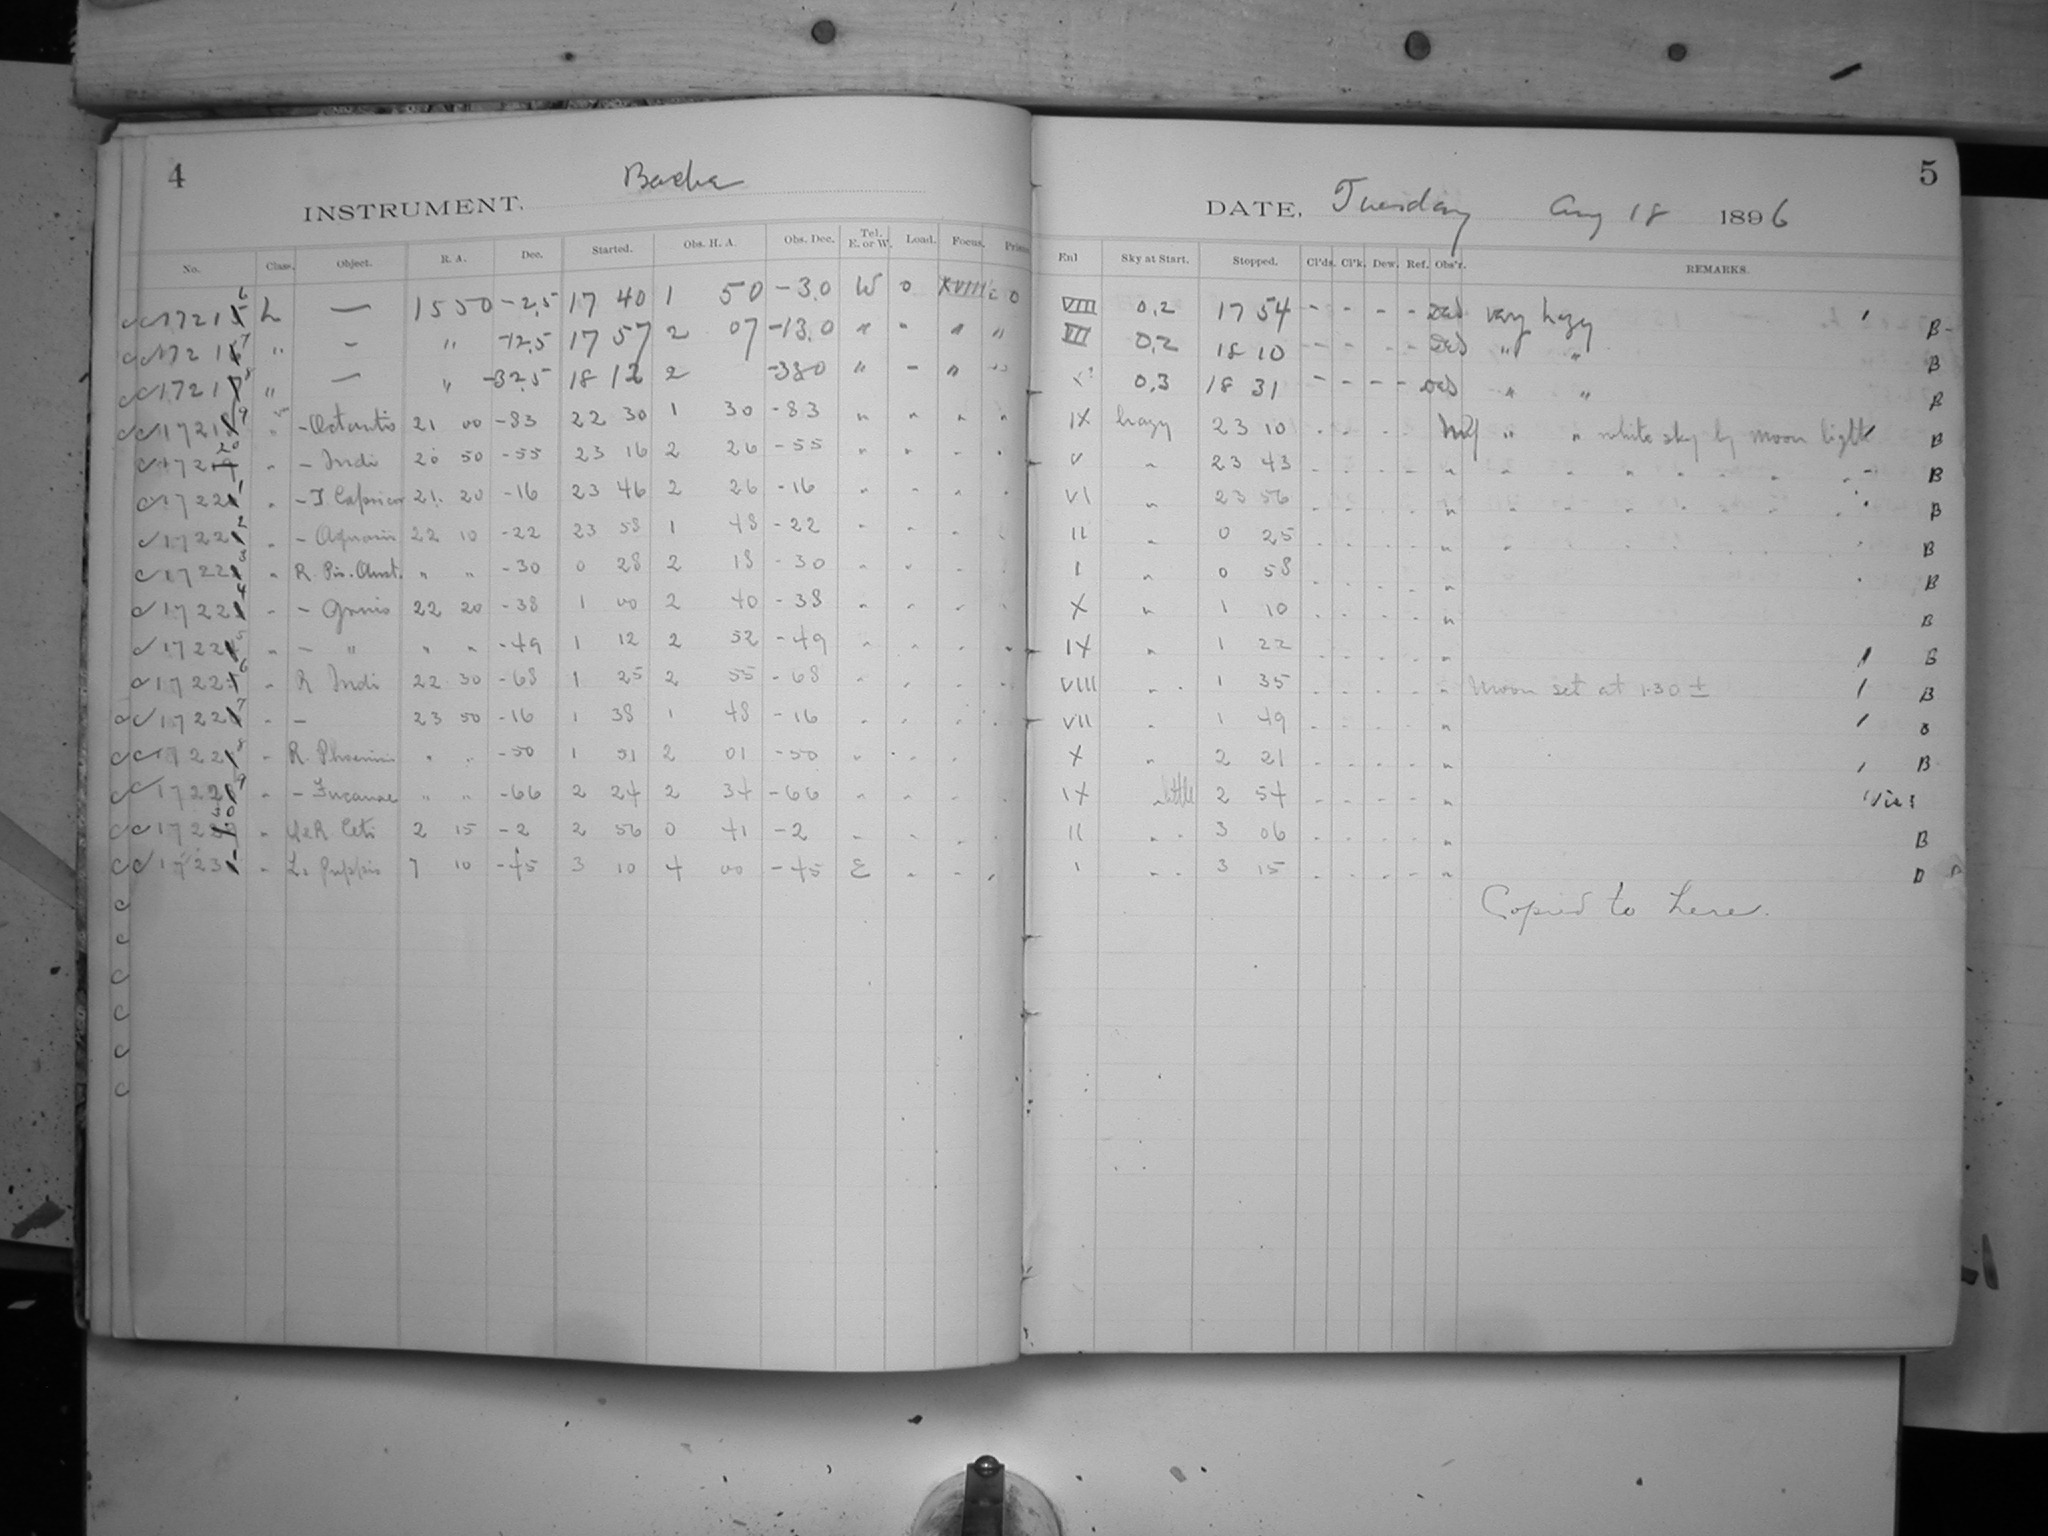 4
INSTRUMENT. Bache
No. Class. Object. R. A. Dec. Started. Obs. H. A. Obs. Dec. Tel. E. or W. Load. Focus. Prisms
17216 L — 15 50 -2.5 17 40 1 50 -3.0 W 0 XVIII 0
17217 " - " -12.5 17 57 2 07 -13.0 " " " "
17218 " — " -32.5 18 12 2 -33.0 " - " "
17219 " - Octantis 21 00 -83 22 30 1 30 -83 " " " "
17220 " - Indi 20 50 -55 23 16 2 26 -55 " " " "
17221 " - T Capricor 21 20 -16 23 46 2 26 -16 " " " "
17222 " - Aquarii 22 10 -22 23 58 1 48 -22 " "
17223 " R. Pis. Aust. " " -30 0 28 2 18 -30 " " " "
17224 " - Gruis 22 20 -38 1 00 2 40 -38 " " " "
17225 " - " " " -49 1 12 2 52 -49 " " " "
17226 " R Indi 22 30 -68 1 25 2 55 -68 " " " "
17227 " - 23 50 -16 1 38 1 48 -16 " " " "
17228 " R. Phoenicis " " -50 1 51 2 01 -50 " " "
17229 " - Tucanae " " -66 2 24 2 34 -66 " " " "
17230 " R Ceti 2 15 -2 2 56 0 41 -2 " " " "
17231 " L2 Puppis 7 10 -45 3 10 4 00 -45 E " " "
5
DATE, Tuesday Aug 18 1896
Enl Sky at Start. Stopped. Cl'ds. Cl'k. Dew. Ref. Obs'r. REMARKS.
VIII 0.2 17 54 - - - - very hazy B
VII 0.2 18 10 - - - - " " B
0.3 18 31 - - - - " " B
IX hazy 23 10 - - - - " " white sky by moon light B
V " 23 43 - - - - " " " " " " " B
VI " 23 56 - - - - " " " " " " " B
II " 0 25 - - - - " B
I " 0 58 - - - - " B
X " 1 10 - - - - " B
IX " 1 22 - - - - " B
VIII " 1 35 - - - - " Moon set at 1.30 ± B
VII " 1 49 - - - - " B
X " 2 21 - - - - " B
IX " little 2 54 - - - - "
II " 3 06 - - - - " B
I " 3 15 - - - - "
Copied to here.